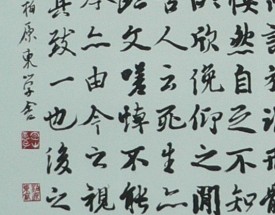 快然自足不知
所欣俛仰之閒
古人云死生亦
此文嗟悼不能
亦由今之視
其致一也後之
原東